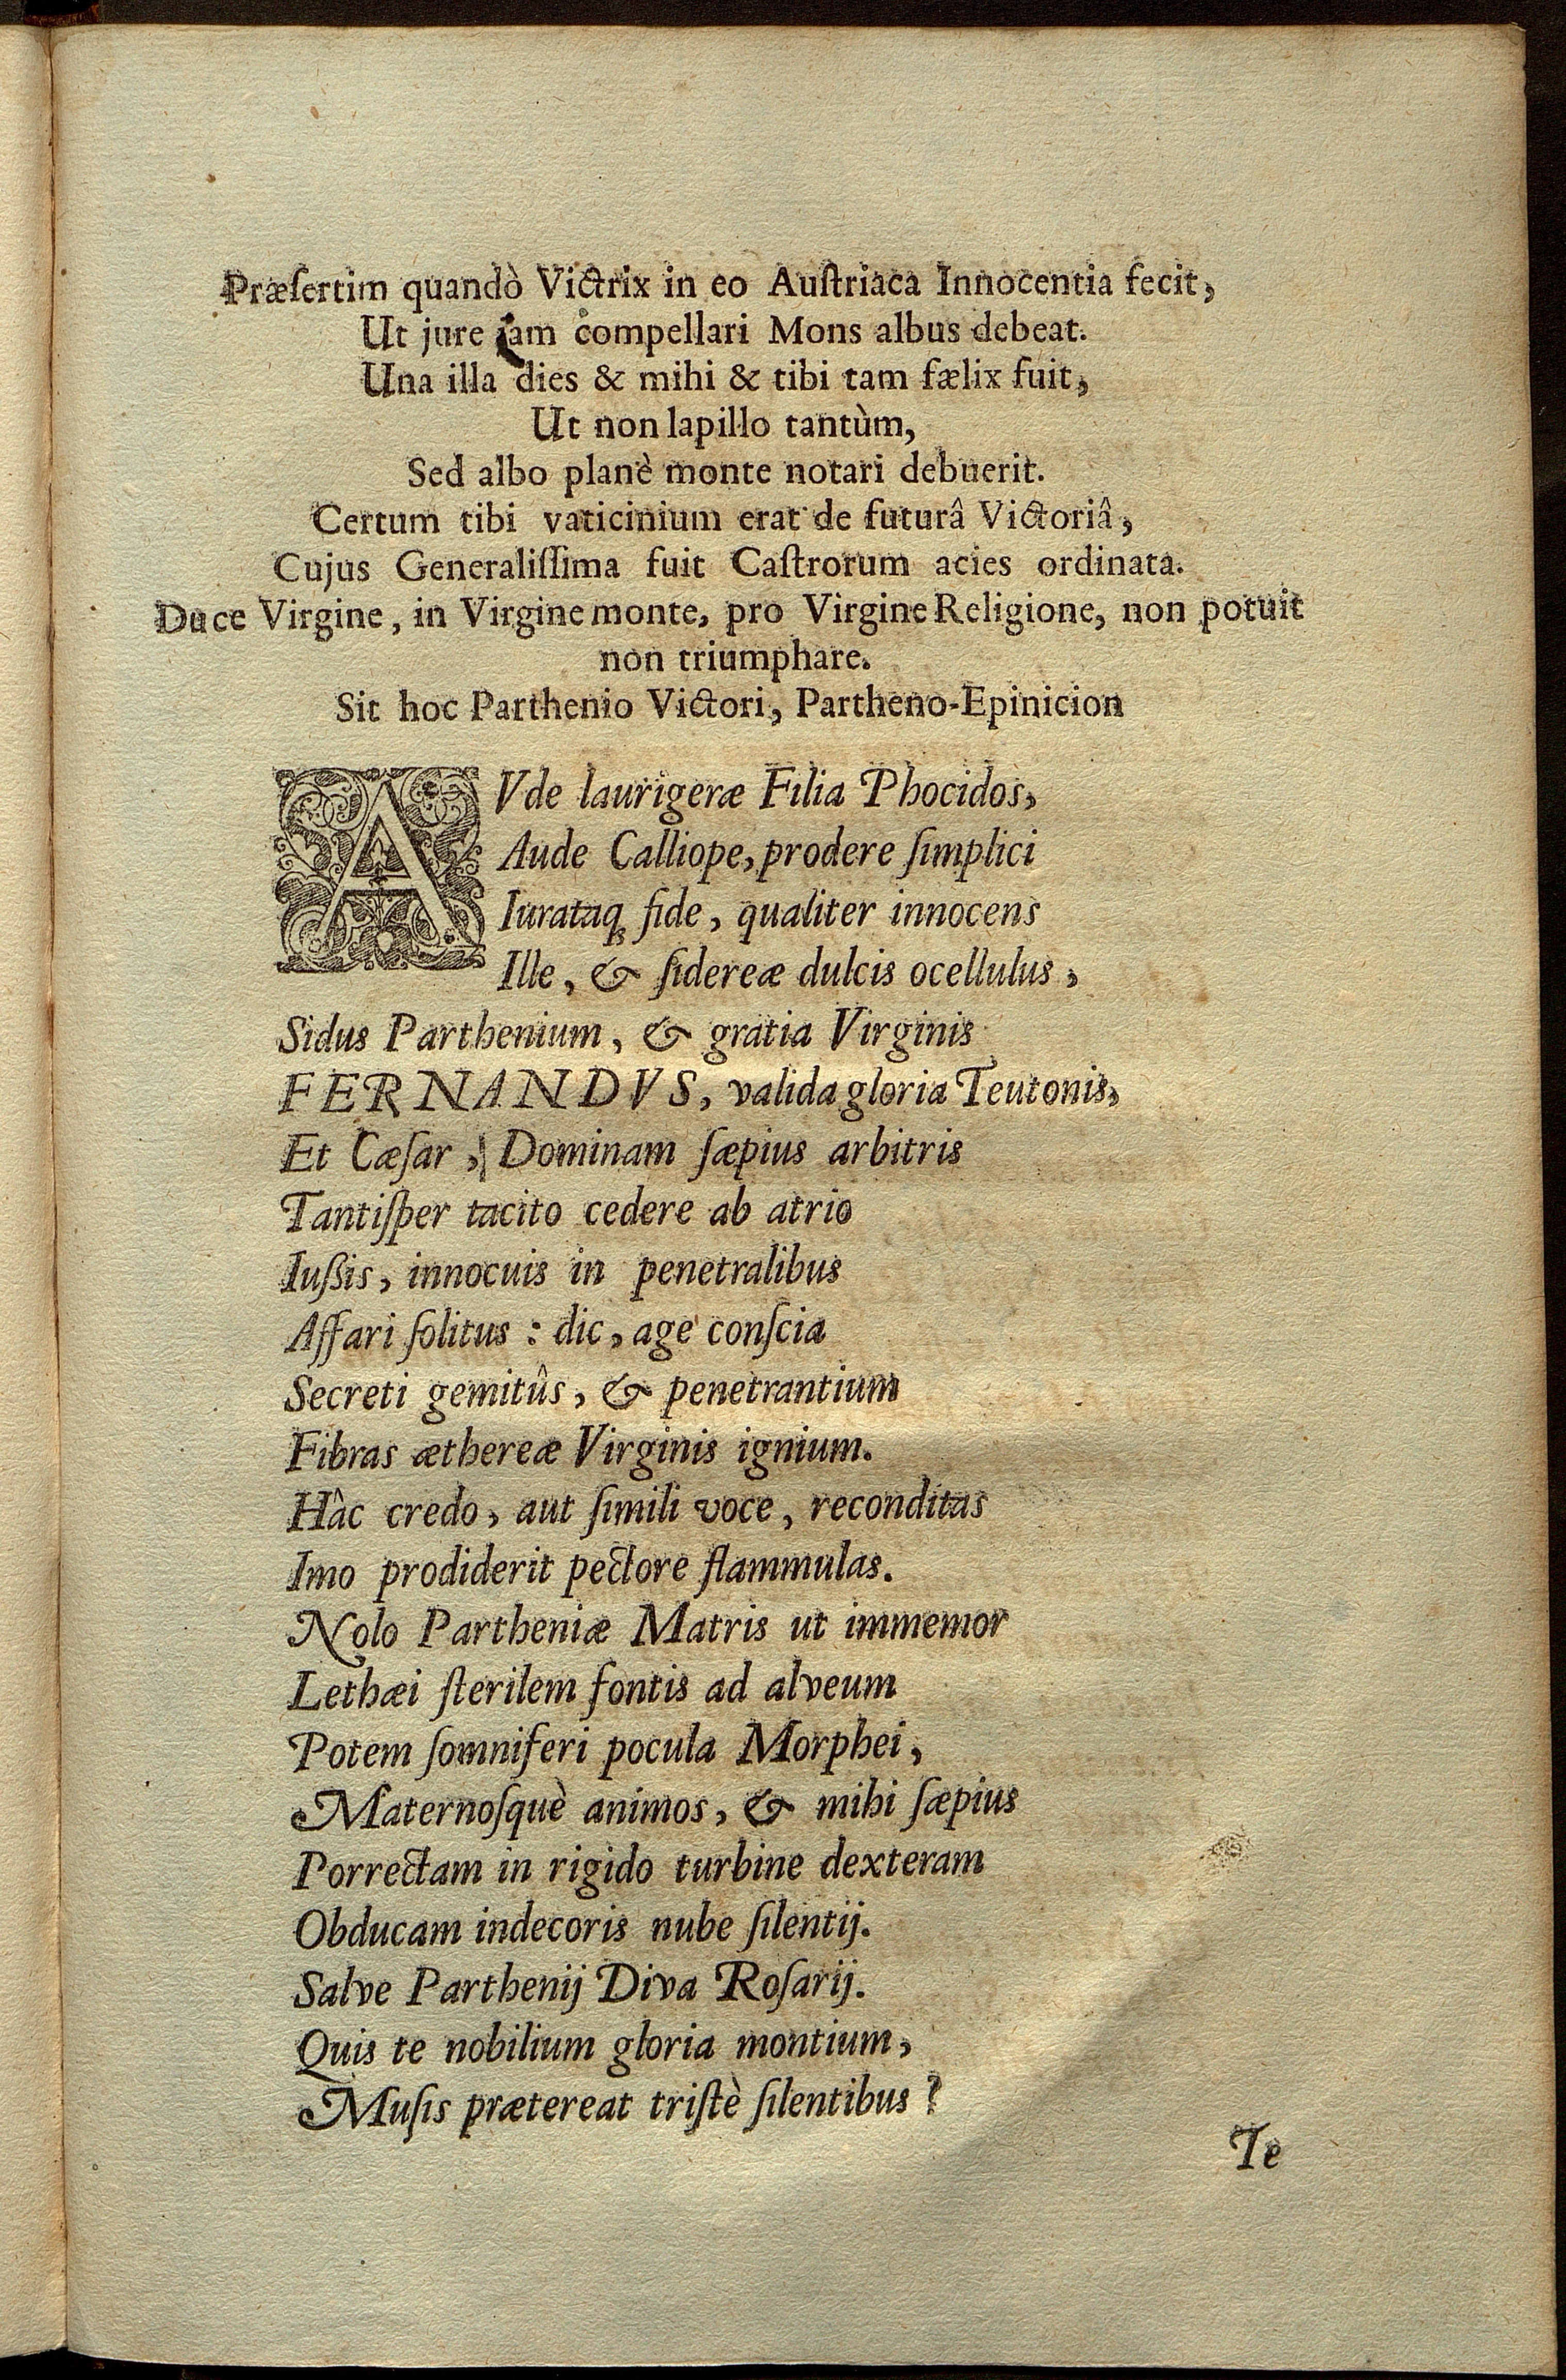 Præſertim quandò Victrix in eo Auſtriaca Innocentia fecit,
Ut jure jam compellari Mons albus debeat.
Una illa dies & mihi & tibi tam fælix fuit,
Ut non lapillo tantùm,
Sed albo planè monte notari debuerit.
Certum tibi vaticinium erat de futurâ Victoriâ,
Cujus Generaliſſima fuit Caſtrorum acies ordinata.
Duce Virgine, in Virgine monte, pro Virgine Religione, non potuit
non triumphare.
Sit hoc Parthenio Victori, Partheno-Epinicion
AVde laurigeræ Filia Phocidos,
Aude Calliope, prodere ſimplici
Iurataq́; fide, qualiter innocens
Ille, & ſidereæ dulcis ocellulus,
Sidus Parthenium, & gratia Virginis
FERNANDVS, valida gloria Teutonis,
Et Cæſar, Dominam ſæpius arbitris
Tantiſper tacito cedere ab atrio
Iuſſis, innocuis in penetralibus
Affari ſolitus : dic, age conſcia
Secreti gemitûs, & penetrantium
Fibras æthereæ Virginis ignium.
Hâc credo, aut ſimili voce, reconditas
Imo prodiderit pectore flammulas.
Nolo Partheniæ Matris ut immemor
Lethæi ſterilem fontis ad alveum
Potem ſomniferi pocula Morphei,
Maternoſquè animos, & mihi ſæpius
Porrectam in rigido turbine dexteram
Obducam indecoris nube ſilentij.
Salve Parthenij Diva Roſarij.
Quis te nobilium gloria montium,
Muſis prætereat triſtè ſilentibus?
Te